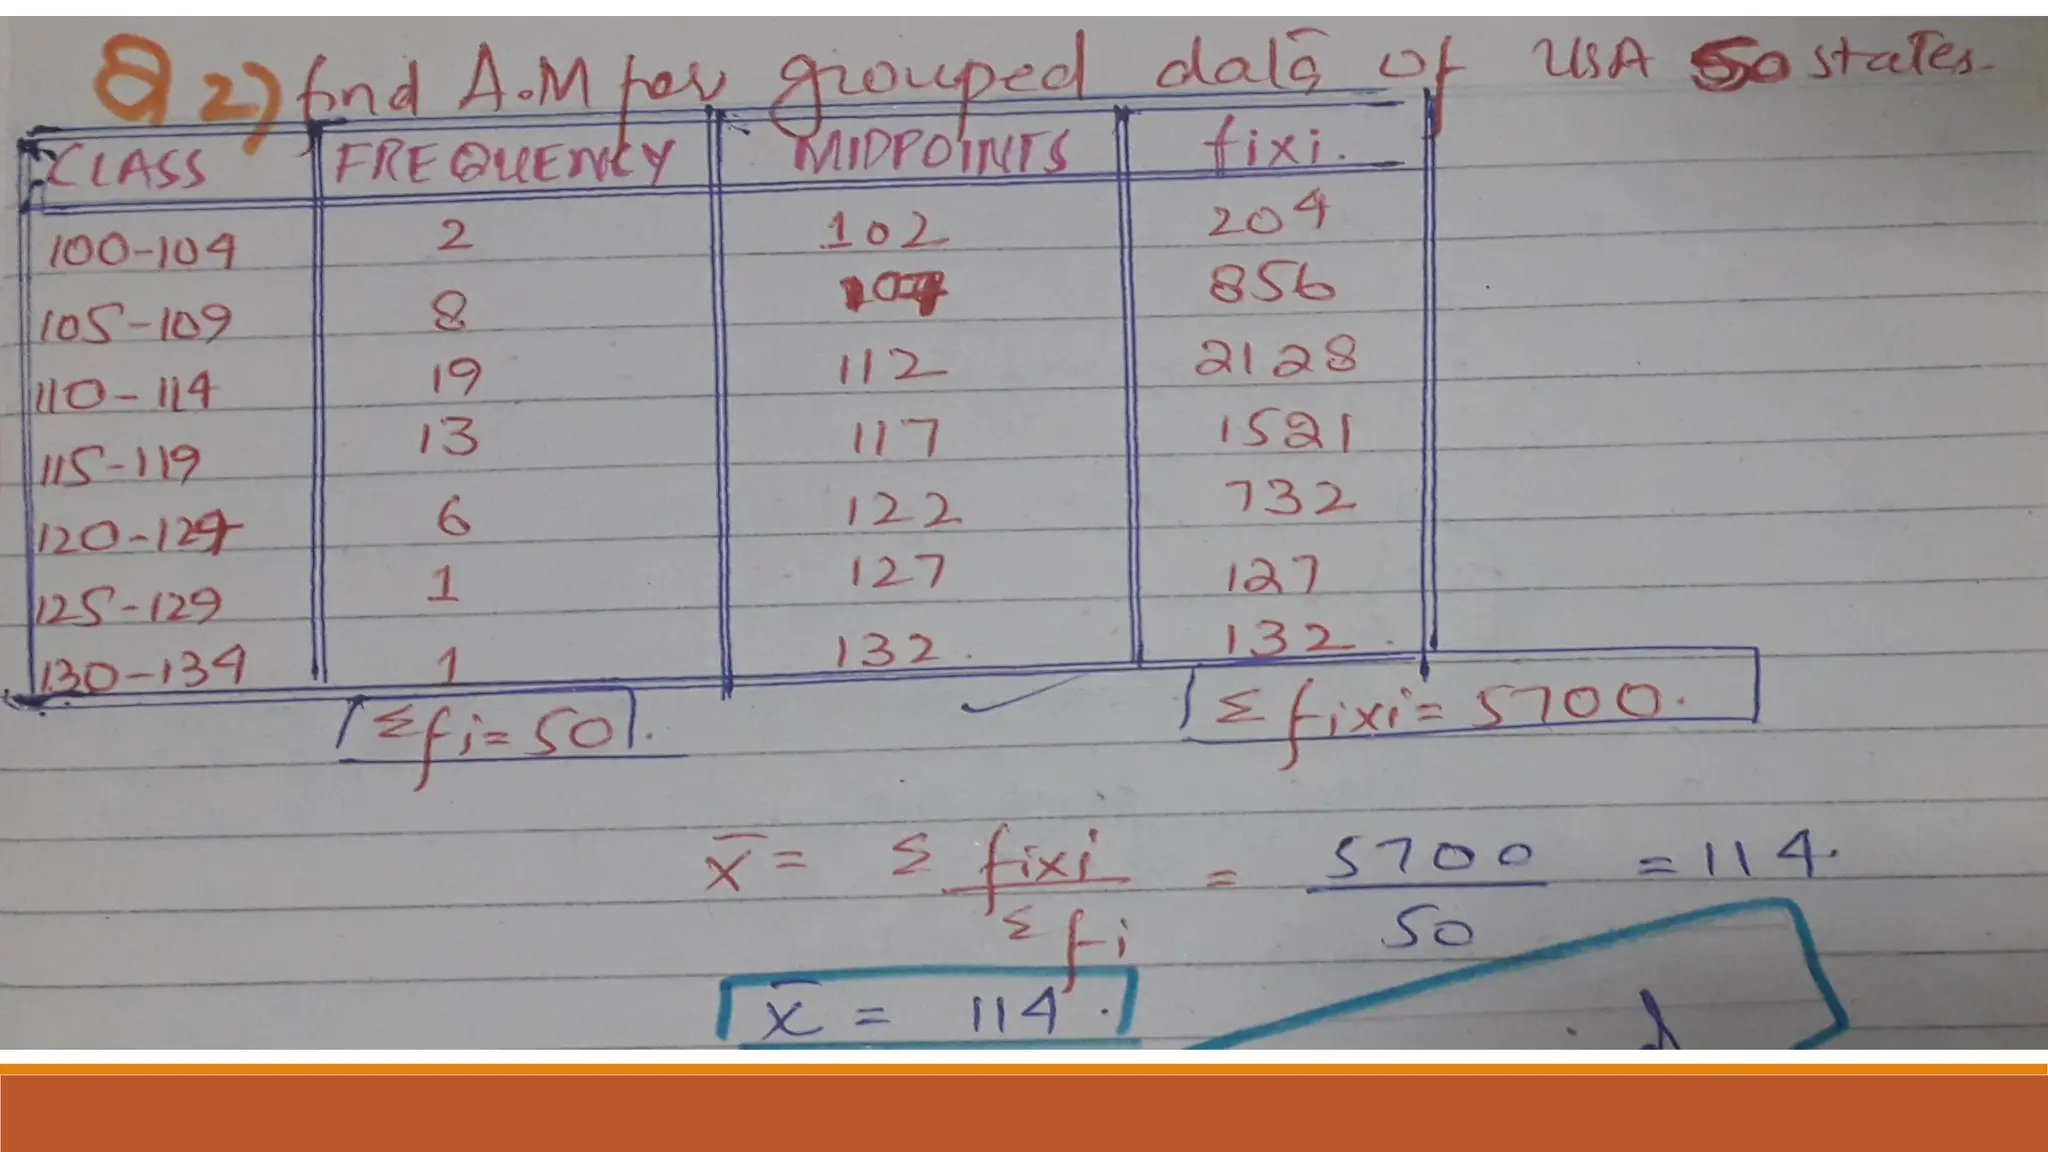 Q 2) find A.M for grouped data of USA 50 states.
CLASS FREQUENCY MIDPOINTS fixi.
100-104 2 102 204
105-109 8 107 856
110-114 19 112 2128
115-119 13 117 1521
120-124 6 122 732
125-129 1 127 127
130-134 1 132. 132.
Σfi=50. Σfixi=5700.
x̄ = Σ fixi / Σ fi = 5700 / 50 = 114.
x̄ = 114.